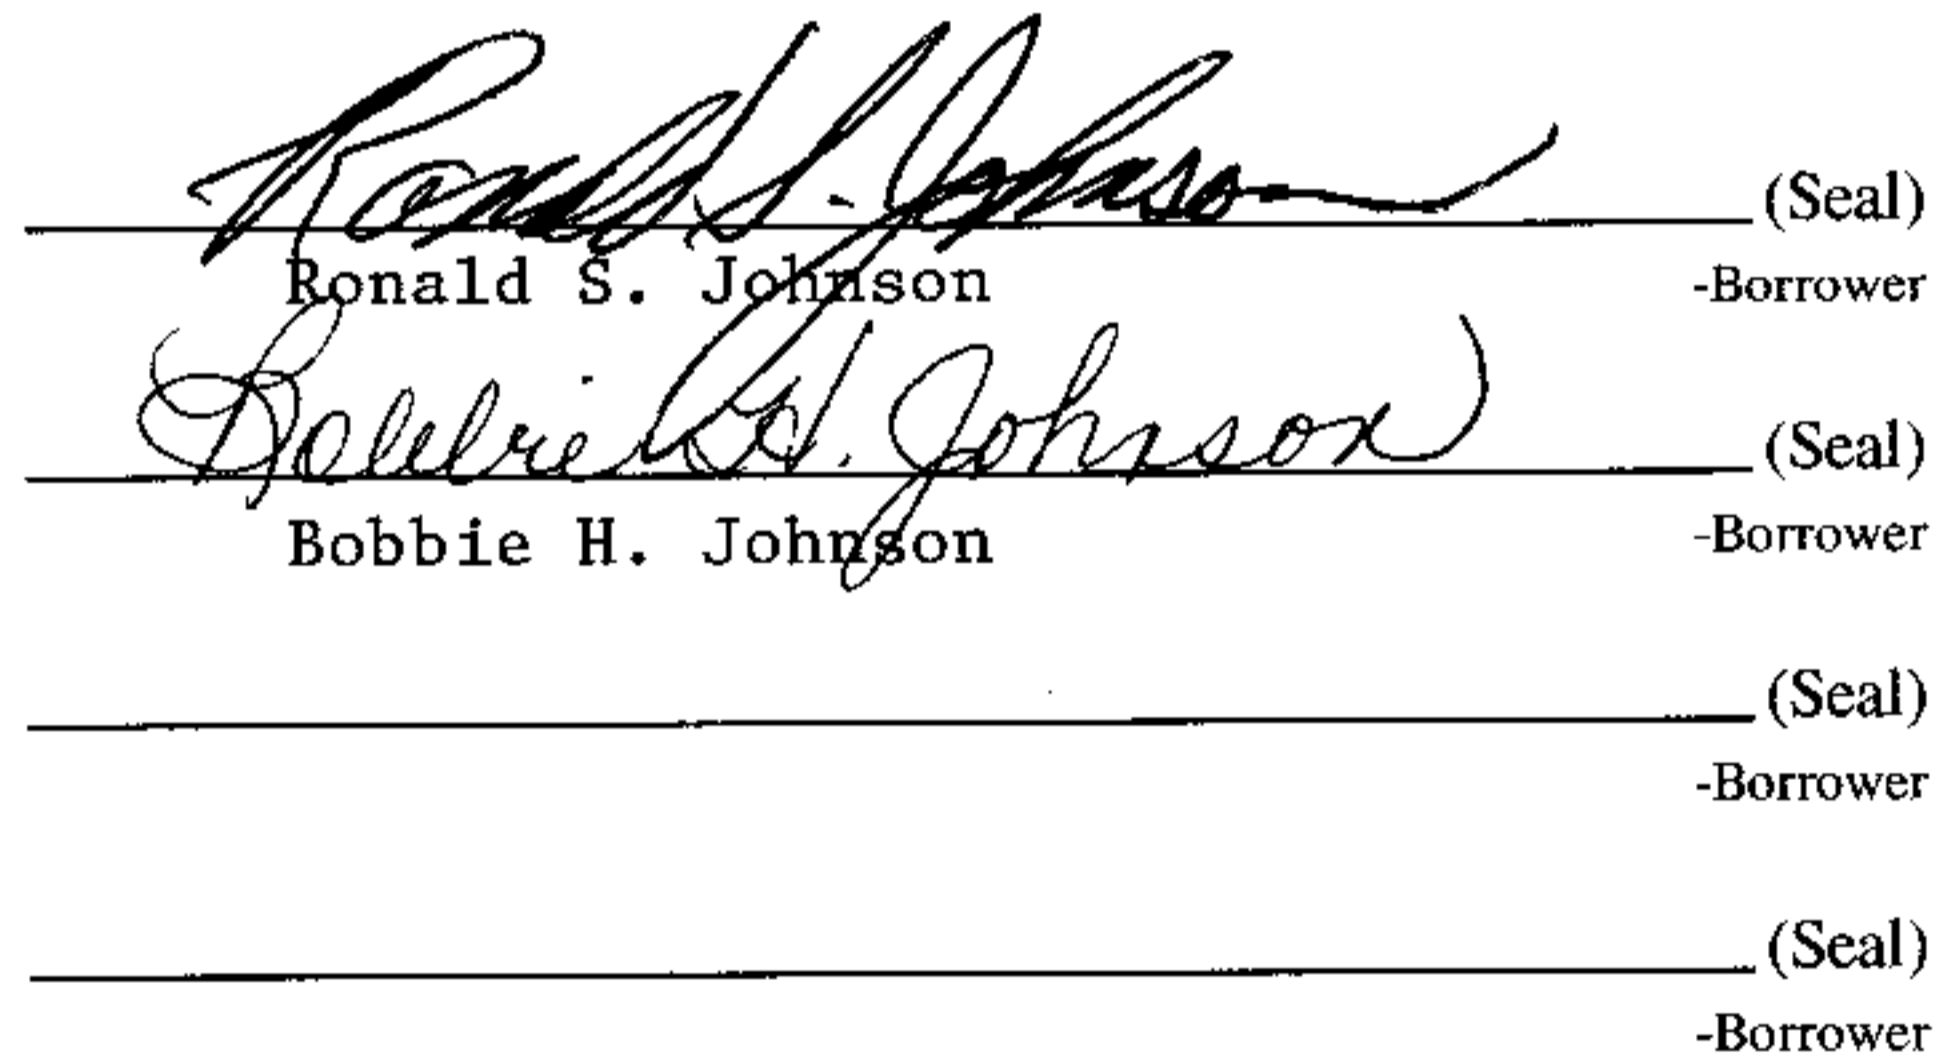 Ronald S. Johnson (Seal)
Ronald S. Johnson -Borrower
Bobbie H. Johnson (Seal)
Bobbie H. Johnson -Borrower
(Seal)
-Borrower
(Seal)
-Borrower